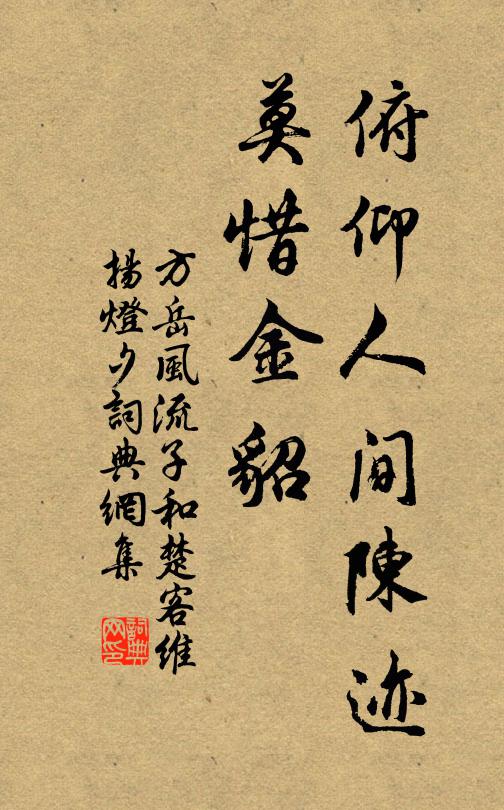 俯仰人间陳迹
莫惜金貂
方岳風流子和楚客維
揚燈夕詞典網集
詞典网印